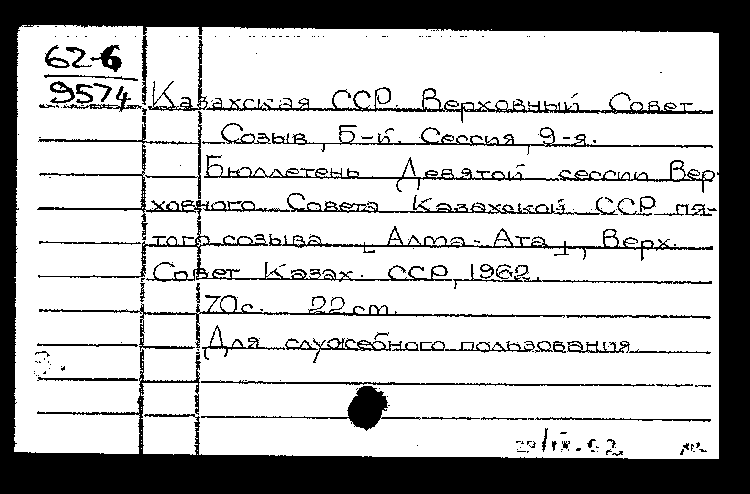 62-6
9574
Казахская ССР. Верховный Совет.
Созыв, 5-й. Сессия, 9-я.
Бюллетень Девятой сессии Вер-
ховного Совета Казахской ССР пя-
того созыва. [Алма-Ата], Верх.
Совет Казах. ССР, 1962.
70 с. 22 cm.
Для служебного пользования
/IX-62